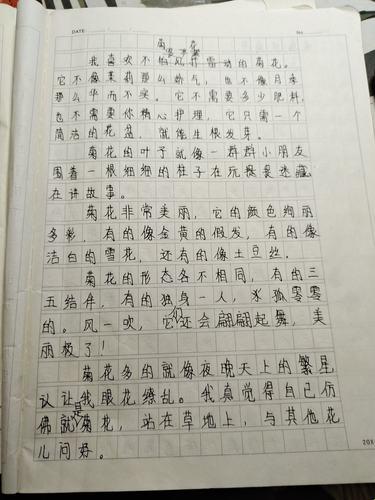 DATE
No
菊花
我喜欢不怕风打雷动的菊花。
它不像茉莉那么娇气，也不像月季
那么华而不实。它不需要多少肥料，
也不需要你精心护理，它只需一个
简洁的花盆，就能生根发芽。
菊花的叶子就像一群群小朋友
围着一根细细的柱子在玩畏畏迷藏，
在讲故事。
菊花非常美丽，它的颜色绚丽
多彩，有的像金黄的假发，有的像
洁白的雪花，还有的像土豆丝。
菊花的形态各不相同，有的三
五结伴，有的独身一人，孤零零
的。风一吹，它们还会翩翩起舞，美
丽极了！
菊花多的就像夜晚天上的繁星
认让我眼花缭乱。我真觉得自已仿
佛就是菊花，站在草地上，与其他花
儿问好。
20X